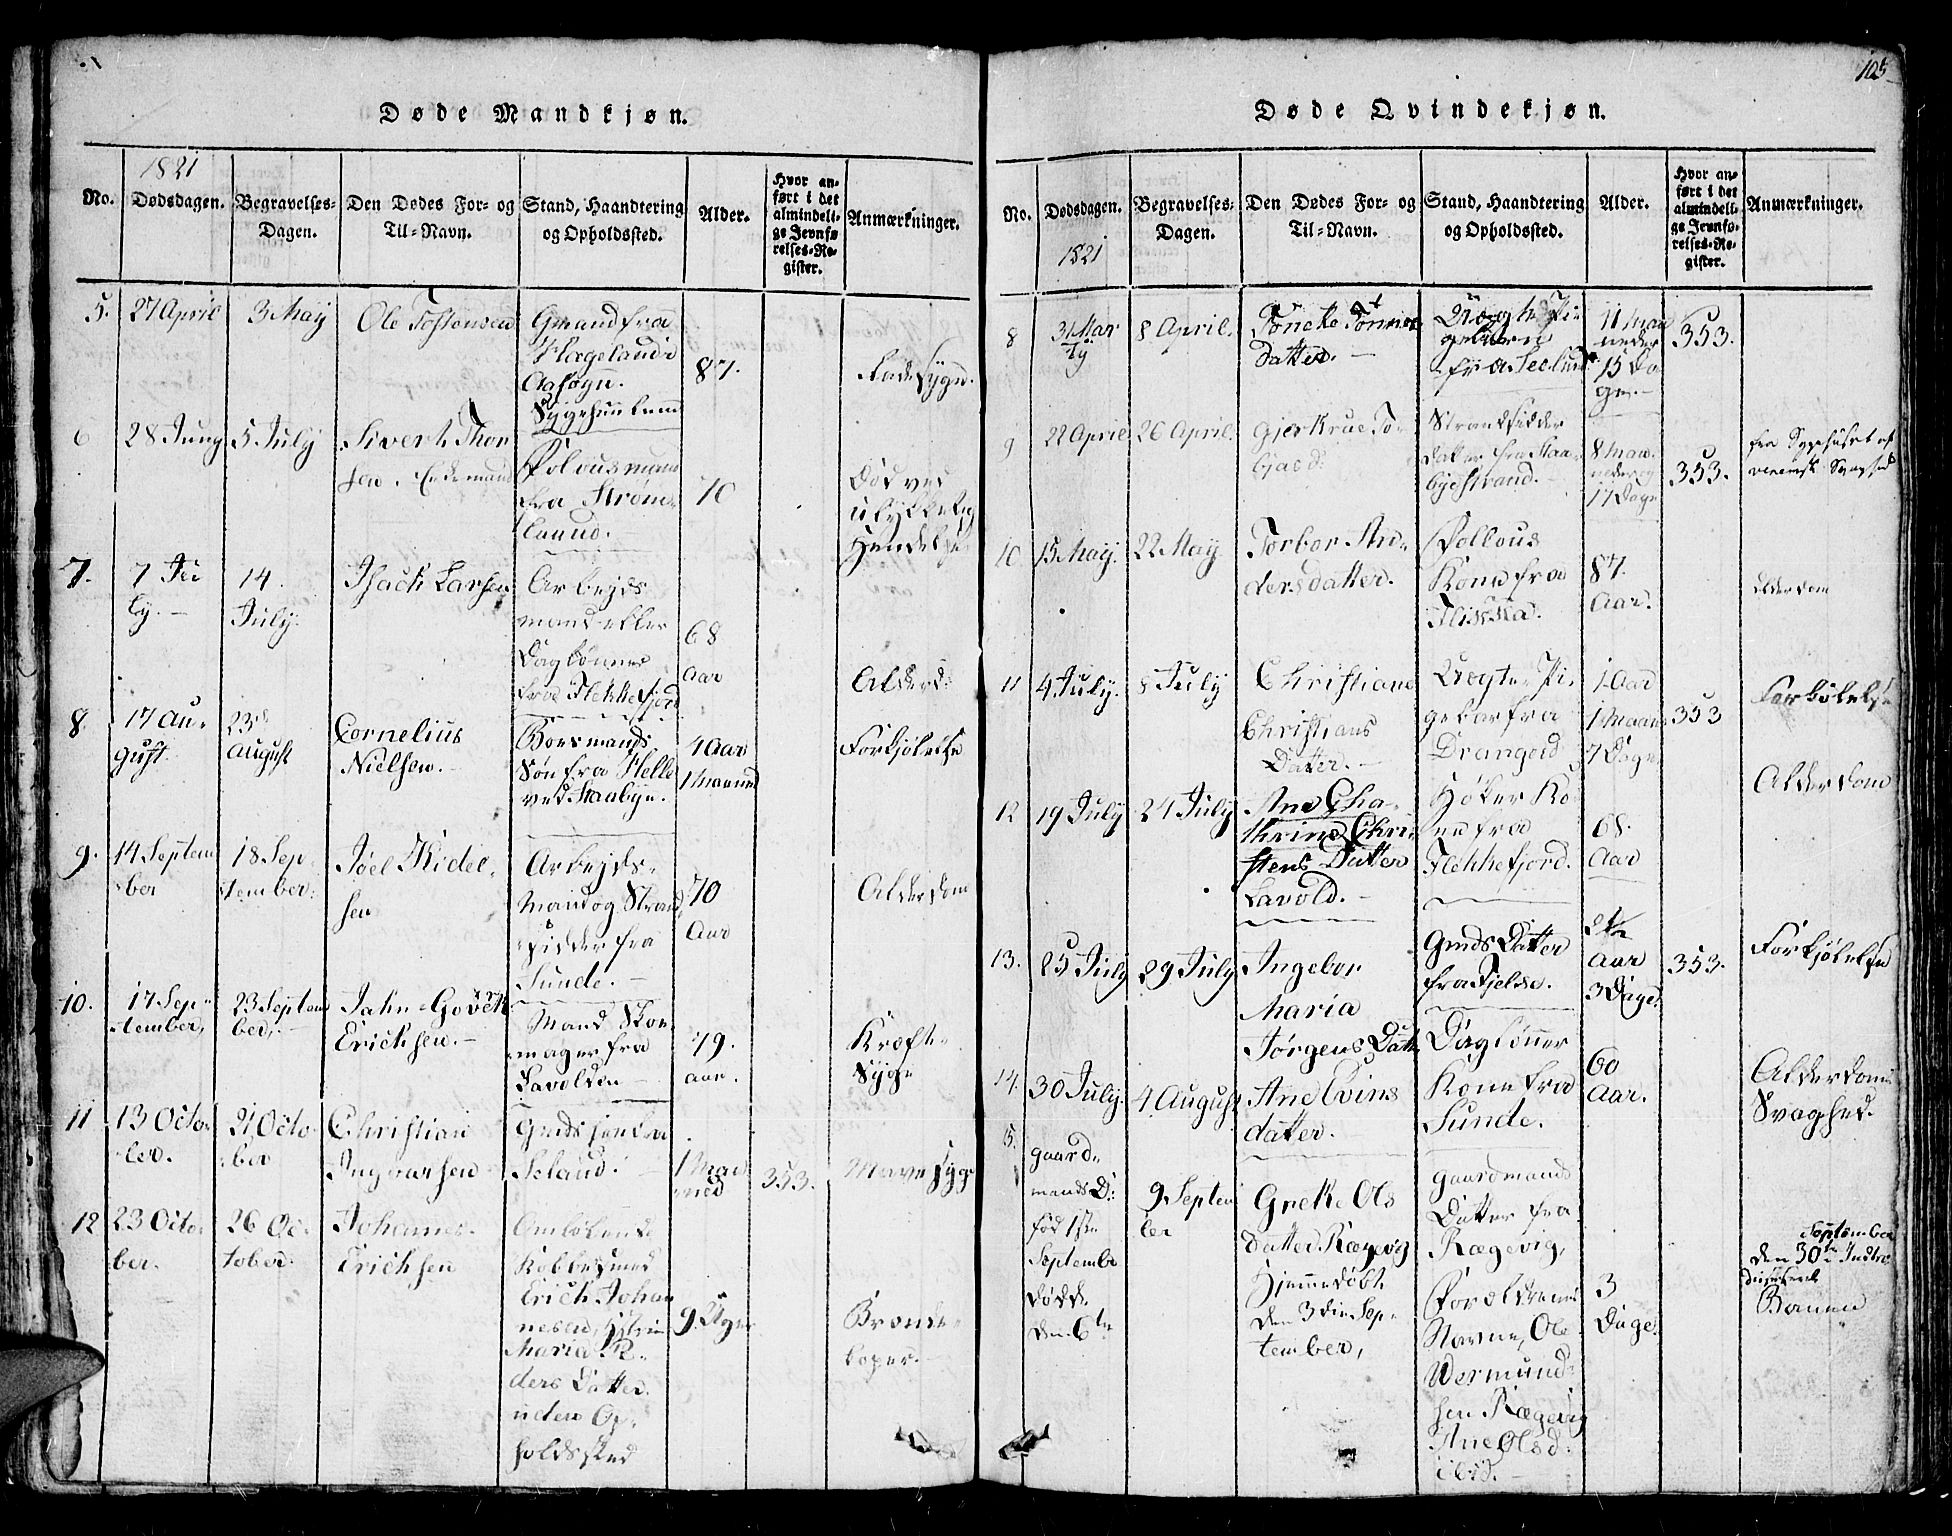 105
Døde Mandkjøn.
1821
No.
Dødsdagen.
Begravelses-
Dagen.
Den Dødes For- og
Til-Navn.
Stand, Haandtering
og Opholdssted.
Alder.
Hvor an-
ført i det
almindeli-
ge Jevnfø-
relses-Re-
gister.
Anmærkninger.
5.
27 April
3 May
Ole Tostensen
Gmand fra
Hægeland i
Aasogn.
Sygehuuslem
87.
RadeSygn.
6
28 Juny
5 July
Sivert Thor
sen. Enkemand
Polous mand
fra Strøm-
laund.
70
Død ved
ulykkelig
Hendelse
7.
7 Ju
ly. -
14.
July.
Isach Larsen
Arbeyds
mand eller
Daglønner
fra Flekkefjord
68
aar
Alderd:
8.
17 au-
gust
23de
august
Cornelius
Nielsen. -
Boesmands
Søn fra Helle
ved Staabye.
4 Aar
1 Maaned
Forkjølelse
9.
14 Septem
ber
18 Sep-
tember.
Joel Kidel-
sen
Arbejds-
Mand og Strand
sidder fra
Sunde. -
70
Aar
Alderdom
10.
17 Sep-
tember,
23 Septem
ber, -
Jahn Govert
Erichsen. -
Mand Skoe-
mager fra
Lavolden -
79.
aar.
Kræft-
Syge
11
13 Octo-
ber.
21 Octo-
ber
Christian
Ingvarsen
Gmds søn fra
Seland.
1 Maa
ned
353.
Mave syge
12
23 Octo-
ber.
26 Oc-
tober.
Johannes
Erichsen
Omløbende
Kobbersmed
Erich Johan
nesen,
Maria
ders Datter.
uden Op-
holdssted
9. Uger
Brænde-
koper. -
Døde Qvindekjøn.
No.
Dødsdagen.
1821
Begravelses-
Dagen.
Den Dødes For- og
Til-Navn.
Stand, Haandtering
og Opholdssted.
Alder.
Hvor an-
ført i det
almindeli-
ge Jevnfø-
relses-Re-
gister.
Anmærkninger.
8
31 Mar
tÿ
8 April.
Tøneke Tønnes
datter. -
Uægte Pi-
gebarn
fra Seelund
11 Maa
neder
15 Da
ge. -
353.
9
22 April
26 April.
Gjertrue Tor-
bjasd:
Strandsidder
datter fra Staa-
byestrand. -
8 Maa-
neder og
17 Dage
353.
fra Sygehuset af
venerisk Svaghed
10
15 May.
22 May
Torbor An-
dersdatter.
Pollous
Kone fra
Flikka.
87.
Aar.
Alderdom
11
4 July.
8 July
Christiane
Christians
Datter. -
Uægte Pi-
gebar fra
Drangeid
1 Aar
1 Maan
7 Dage
353
Forkølelse
12
19 July
24 July
Ane Cha-
thrine Chri-
stens Datter
Lavold. -
Høker Ko-
ne fra
Flekkefjord.
68.
Aar
Alderdom
13.
25 July
29 July
Ingebor
Maria
Jørgens Datt
Gmds Datter
fra Fjelse.
2 1/2
Aar
3 Dage.
353.
Forkjølelse
14.
30 July.
4 August
Ane Evins
datter.
Dagløner
Kone fra
Sunde.
60
Aar.
Alderdoms
Svaghed.
15.
gaard-
mands D:
fød 1ste
Septembr
døde
den 6te
9 Septem
ber
Grete Ols
datter Rægevig
Hjemmedøbt
den 3die Sep-
tember,
gaardmands
Datter fra
Rægevig,
Forældrenes
Navne, Ole
Wermund-
sen Rægevig
Ane Olsd:
ibid. -
3
Dage.
September
den 30te Intro
duceret
Konen